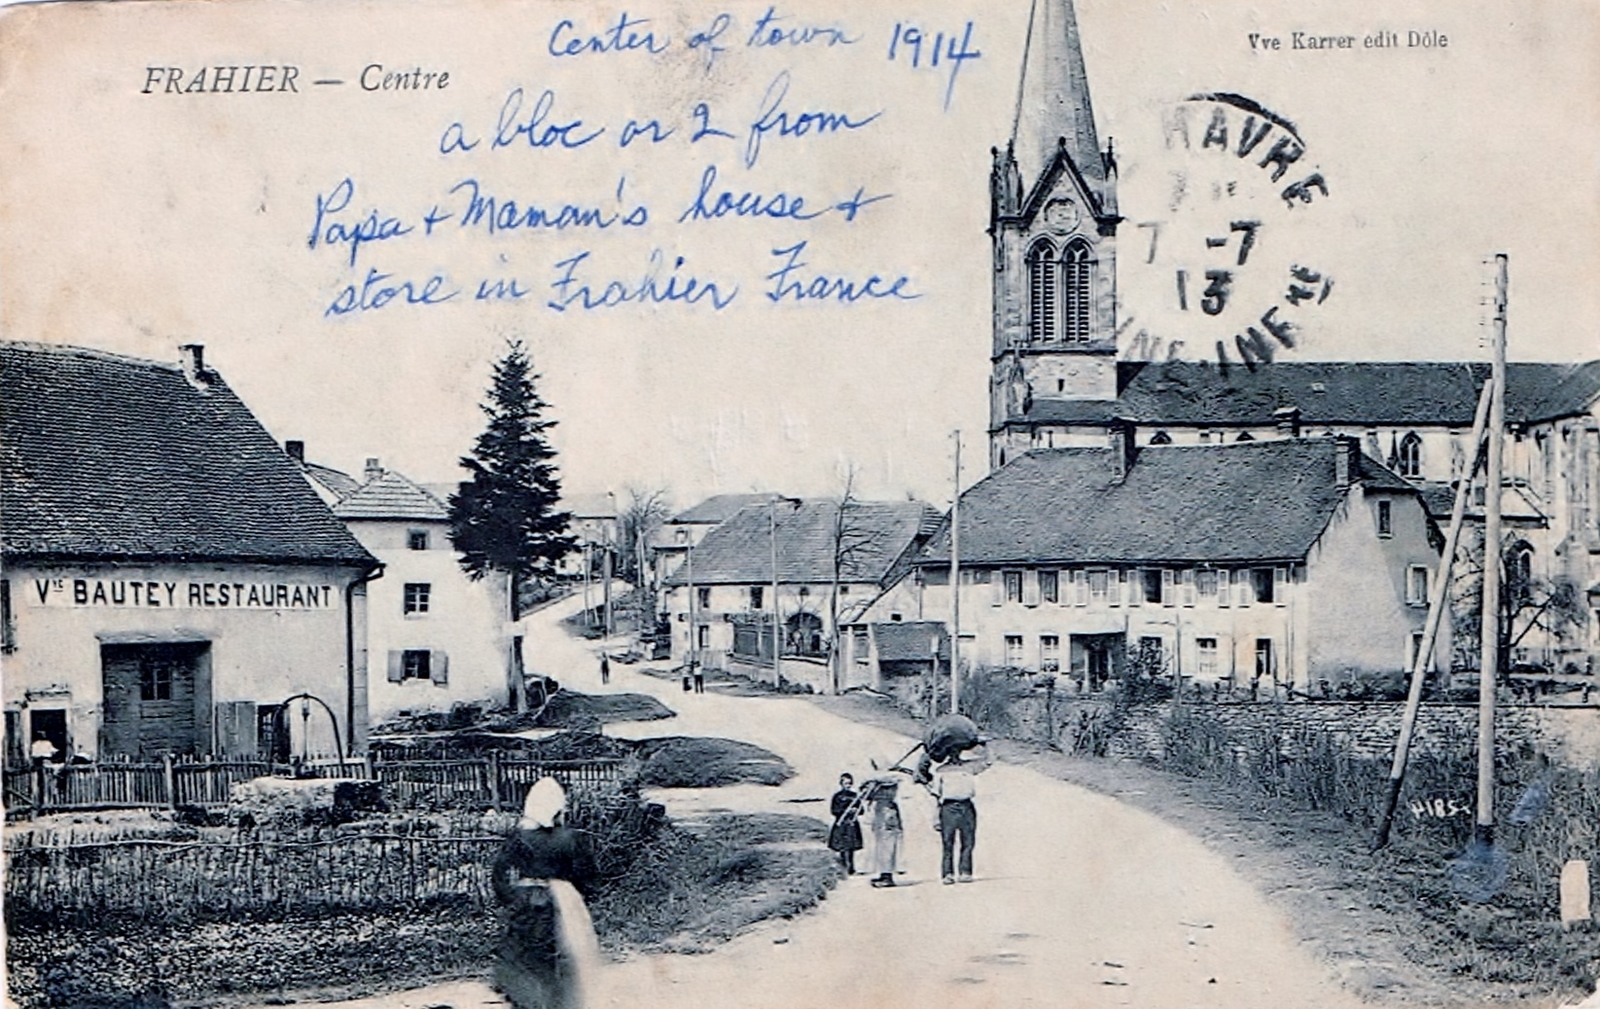 FRAHIER — Centre
Vve Karrer édit Dôle
Center of town 1914
a bloc or 2 from
Papa + Maman's house +
store in Frahier France
HAVRE
7 -7
13
INFRE
Vve BAUTEY RESTAURANT